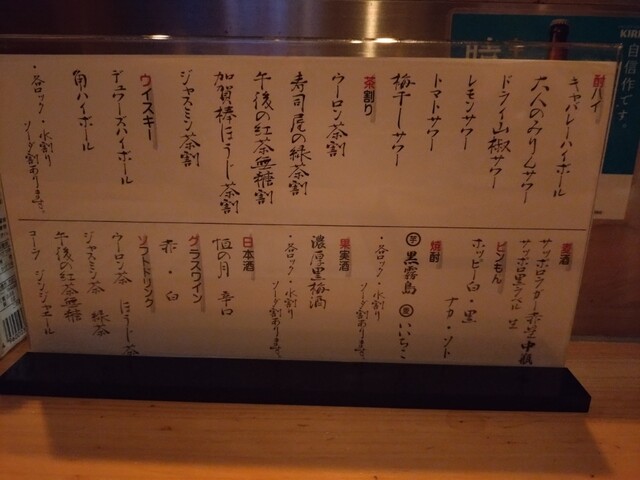 酎ハイ
キャバレーハイボール
大人のみりんサワー
ドライ山椒サワー
レモンサワー
トマトサワー
梅干しサワー
茶割り
ウーロン茶割
寿司屋の緑茶割
午後の紅茶無糖割
加賀棒ほうじ茶割
ジャスミン茶割
ウイスキー
デュワーズハイボール
角ハイボール
・各ロック・水割り
ソーダ割あります。
麦酒
サッポロラガー 赤星 中瓶
サッポロ黒ラベル 生
ビンもん
ホッピー 白・黒
ナカ・ソト
焼酎
芋 黒霧島 麦 いいちこ
・各ロック・水割り
ソーダ割あります。
果実酒
濃厚黒梅酒
・各ロック・水割り
ソーダ割あります。
日本酒
恒の月 辛口
グラスワイン
赤・白
ソフトドリンク
ウーロン茶 ほうじ茶
ジャスミン茶 緑茶
午後の紅茶無糖
コーラ ジンジャエール
KIRI
自信作です。